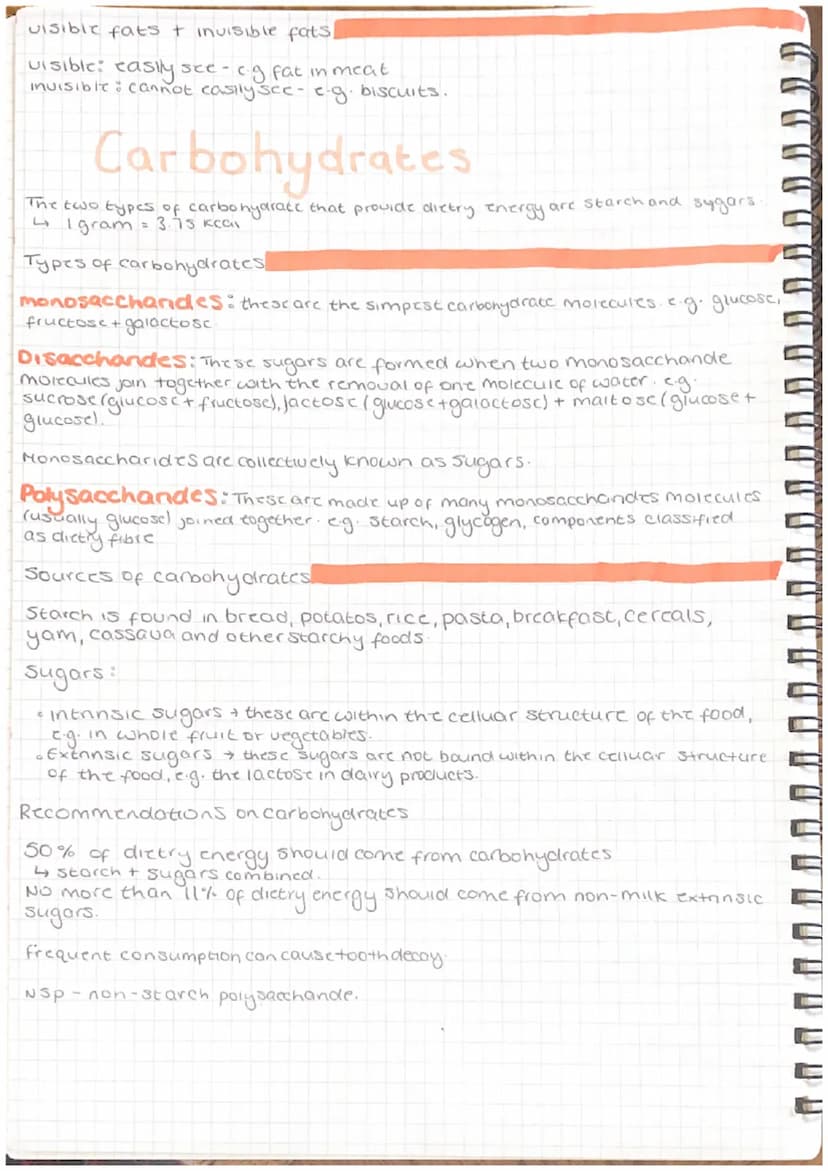 visible fats + invisible fats
visible: easily see - e.g fat in meat
invisible: cannot easily see - e.g. biscuits.
Carbohydrates
The two types of carbohydrate that provide dietry energy are starch and sygars.
↳ 1 gram = 3.75 kcal
Types of carbohydrates
monosaccharides: these are the simpest carbohydrate molecules. e.g. glucose,
fructose + galactose
Disaccharides: These sugars are formed when two monosaccharide
molecules join together with the removal of one molecule of water. e.g.
sucrose (glucose + fructose), lactose (glucose + galactose) + maltose (glucose +
glucose).
Monosaccharides are collectively known as sugars.
Polysaccharides: These are made up of many monosaccharides molecules
(usually glucose) joined together. e.g. starch, glycogen, components classified
as dietry fibre
Sources of carbohydrates
Starch is found in bread, potatos, rice, pasta, breakfast, cereals,
yam, cassava and other starchy foods.
Sugars:
• intrinsic sugars → these are within the celluar structure of the food,
e.g. in whole fruit or vegetables.
• Extrinsic sugars → these sugars are not bound within the celluar structure
of the food, e.g. the lactose in dairy products.
Recommendations on carbohydrates
50% of dietry energy should come from carbohydrates
↳ starch + sugars combined.
No more than 11% of dietry energy should come from non-milk extrinsic
sugars.
frequent consumption can cause tooth decay.
NSP - non-starch polysaccharide.